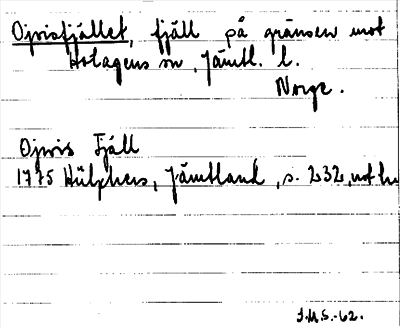 Ojvisfjället, fjäll på gränsen mot
Hotagens sn, Jämtl. l.
Norge.
Ojwis Fjäll
1775 Hülphers, Jämtland, s. 232, not
I.M.S.-62.